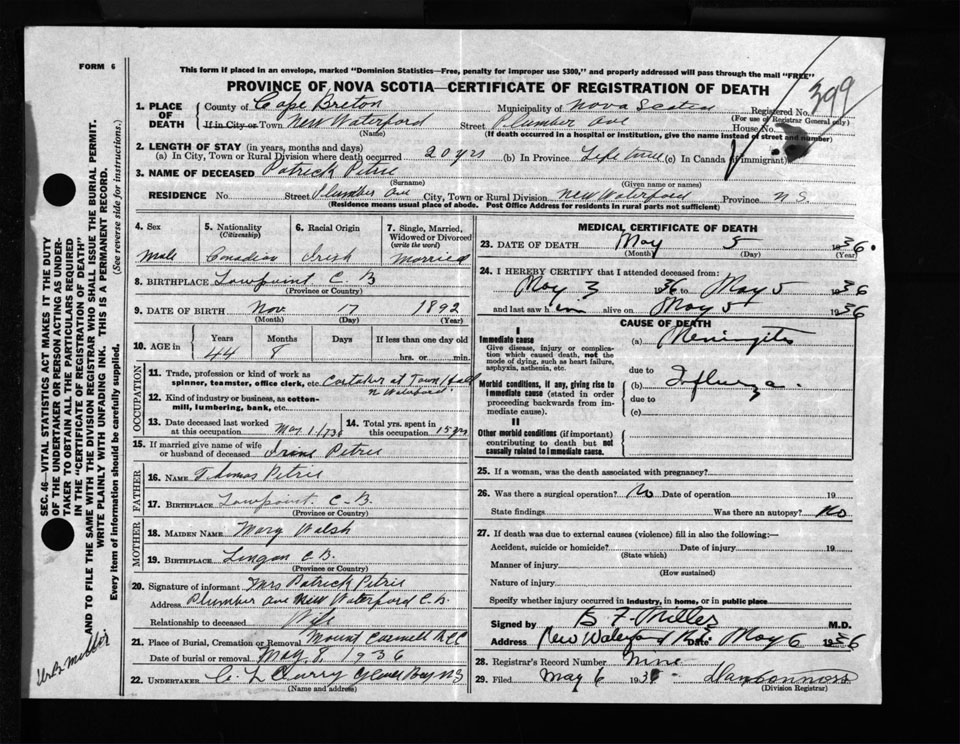 FORM 6
This form if placed in an envelope, marked "Dominion Statistics—Free, penalty for improper use $300," and properly addressed will pass through the mail "FREE"
PROVINCE OF NOVA SCOTIA—CERTIFICATE OF REGISTRATION OF DEATH
399
1. PLACE OF DEATH
County of Cape Breton Municipality of Nova Scotia Registered No.
(For use of Registrar General only)
If in City or Town New Waterford Street Plumber Ave House No.
(Name) (If death occurred in a hospital or institution, give the name instead of street and number)
2. LENGTH OF STAY (in years, months and days)
(a) In City, Town or Rural Division where death occurred 20 yrs (b) In Province Life time (c) In Canada (if immigrant)
3. NAME OF DECEASED Patrick Petrie
(Surname) (Given name or names)
RESIDENCE No. Street Plumber Ave City, Town or Rural Division New Waterford Province N.S.
(Residence means usual place of abode. Post Office Address for residents in rural parts not sufficient)
4. Sex Male
5. Nationality (Citizenship) Canadian
6. Racial Origin Irish
7. Single, Married, Widowed or Divorced (write the word) Married
8. BIRTHPLACE Lowpoint C B
(Province or Country)
9. DATE OF BIRTH Nov. 17 1892
(Month) (Day) (Year)
10. AGE in Years Months Days If less than one day old
44 8 hrs. or min.
OCCUPATION
11. Trade, profession or kind of work as spinner, teamster, office clerk, etc. Caretaker at Town Hall
N Waterford
12. Kind of industry or business, as cotton-mill, lumbering, bank, etc.
13. Date deceased last worked at this occupation May 1/36
14. Total yrs. spent in this occupation 15 yrs
15. If married give name of wife or husband of deceased Petrie
FATHER
16. NAME Thomas Petrie
17. BIRTHPLACE Lowpoint C-B.
(Province or Country)
MOTHER
18. MAIDEN NAME Mary Walsh
19. BIRTHPLACE Lingan C.B.
(Province or Country)
20. Signature of informant Mrs Patrick Petrie
Address Plumber Ave New Waterford C.B.
Relationship to deceased Wife
21. Place of Burial, Cremation or Removal Mount Carmell
Date of burial or removal May 8, 1936
22. UNDERTAKER Curry Glace Bay NS
(Name and address)
MEDICAL CERTIFICATE OF DEATH
23. DATE OF DEATH May 5 1936.
(Month) (Day) (Year)
24. I HEREBY CERTIFY that I attended deceased from:
May 3 1936 to May 5 1936
and last saw him alive on May 5 1936
CAUSE OF DEATH
I
Immediate cause
Give disease, injury or complication which caused death, not the mode of dying, such as heart failure, asphyxia, asthenia, etc.
(a) Meningitis
due to
Morbid conditions, if any, giving rise to immediate cause (stated in order proceeding backwards from immediate cause).
(b) Influenza.
due to
(c)
II
Other morbid conditions (if important) contributing to death but not causally related to immediate cause.
25. If a woman, was the death associated with pregnancy?
26. Was there a surgical operation? No Date of operation 19
State findings Was there an autopsy? No
27. If death was due to external causes (violence) fill in also the following:—
Accident, suicide or homicide? Date of injury 19
(State which)
Manner of injury
(How sustained)
Nature of injury
Specify whether injury occurred in industry, in home, or in public place
Signed by F Miller M.D.
Address Date May 6 1936
28. Registrar's Record Number
29. Filed May 6 193
(Division Registrar)
SEC. 46—VITAL STATISTICS ACT MAKES IT THE DUTY
OF THE UNDERTAKER OR PERSON ACTING AS UNDER-
TAKER TO OBTAIN ALL THE PARTICULARS REQUIRED
IN THE "CERTIFICATE OF REGISTRATION OF DEATH"
AND TO FILE THE SAME WITH THE DIVISION REGISTRAR WHO SHALL ISSUE THE BURIAL PERMIT.
WRITE PLAINLY WITH UNFADING INK. THIS IS A PERMANENT RECORD.
Every item of information should be carefully supplied. (See reverse side for instructions.)